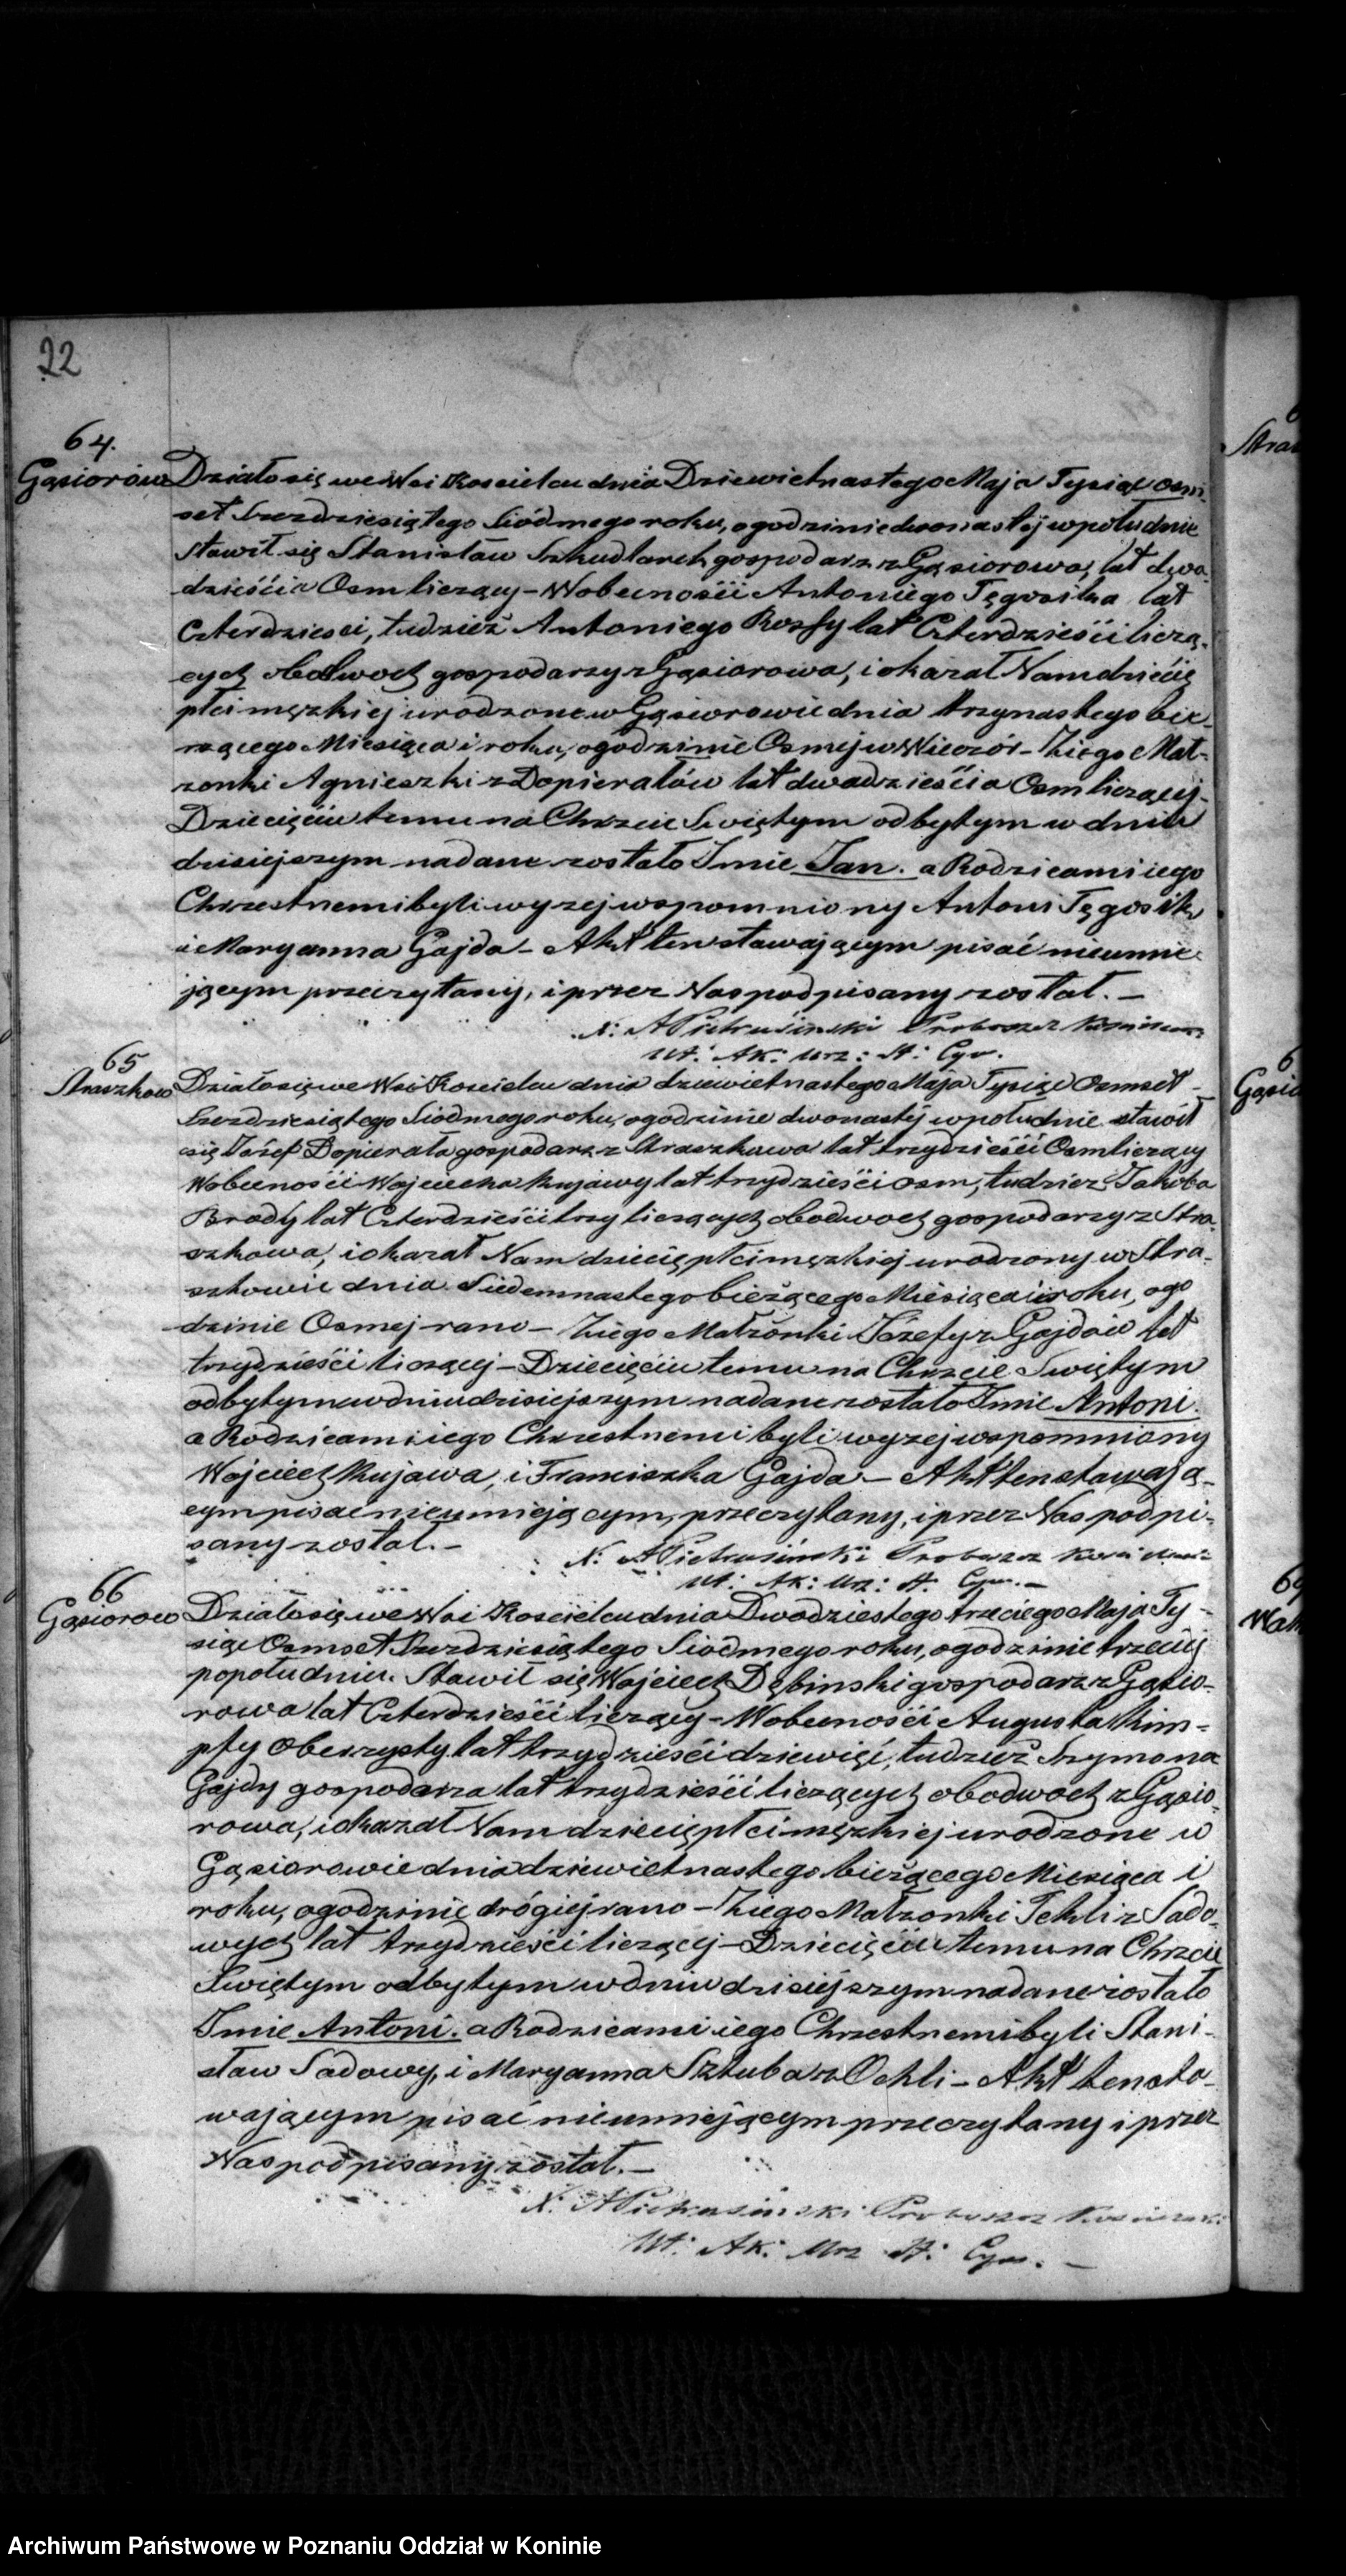 22
64.
Gąsiorów
Działo się we Wsi Kościelcu dnia Dziewietnastego Maja Tysiąc osm-
set Szezdziesiątego Siódmego roku, o godzinie dwonastéj w południe
Stawił się Stanisław Szkudlarek gospodarz z Gąsiorowa, lat dwa-
dzieścia Osm liczący – W obecności Antoniego Tęgosika lat
Czterdziesci, tudzież Antoniego Rossy lat Czterdzieści licza-
cych obudwoch gospodarzy z Gąsiorowa, i okazał Nam dziecię
płci męzkiej urodzone w Gąsiorowie dnia trzynastego bie-
zącego Miesiąca i roku, o godzinie Osmej w Wieczór – Z iego Mał-
zonki Agnieszki z Dopierałów lat dwadzieścia Osm liczącej –
Dziecięciu temu na Chrzcie Swiętym odbytym w dniu
dzisiejszym nadane zostało Imie Jan. a Rodzicami iego
Chrzestnemi byli wyzej wspomniony Antoni Tęgosik
i Maryanna Gajda – Akt ten stawającym pisać nieumie-
jącym przeczytany, i przez Nas podpisany został. –
X: A Pietrusiński Proboszcz
Ut: Ak: Urz: St: Cyw.
65
Straszkow
Działo się we Wsi Kościelcu dnia dziewietnastego Maja Tysiąc Osmset
Szezdziesiątego Siódmego roku, o godzinie dwonastéj w południe stawił
się Józef Dopierała gospodarz z Straszkowa lat trzydzieści Osm liczący
W obecności Wojciecha Kujawy lat trzydzieści osm, tudziez Jakóba
Brody lat Czterdzieści trzy liczących obudwoch gospodarzy z Stra-
szkowa, i okazał Nam dziecię płci męzkiej urodzony w Stra-
szkowie dnia Siedemnastego bieżącego Miesiąca i roku, o go
dzinie Osmej rano – Z iego Małżonki Józefy z Gajdów lat
trzydzieści liczącej – Dziecięciu temu na Chrzcie Swiętym
odbytym w dniu dzisiejszym nadane zostało Imie Antoni.
a Rodzicami iego Chrzestnemi byli wyzej wspomniony
Wojciech Kujawa, i Franciszka Gajda – Akt ten stawają-
cym pisać nieumiejącym, przeczytany, i przez Nas podpi-
sany został. –
X: A Pietrusiński Proboszcz
Ut: Ak: Urz: St. Cyw. –
66
Gąsiorow
Działo się we Wsi Kościelcu dnia Dwadziestego trzeciego Maja Ty-
siąc Osmset Szezdziesiątego Siódmego roku, o godzinie trzeciej
popołudniu. Stawił się Wojciech Dębinski gospodarz z Gąsio-
rowa lat Czterdzieści liczący – W obecności Augusta Kim-
pfy Oberzysty lat trzydzieści dziewięć, tudzież Szymona
Gajdy gospodarza lat trzydzieści liczących obudwoch z Gąsio-
rowa, i okazał Nam dziecię płci męzkiej urodzone w
Gąsiorowie dnia dziewietnastego bieżącego Miesiąca i
roku, o godzinie drógiej rano – Z iego Małzonki Tekli z Sado-
wych lat trzydzieści liczącej – Dziecięciu temu na Chrzcie
Swiętym odbytym w dniu dzisiejszym nadane zostało
Imie Antoni. a Rodzicami iego Chrzestnemi byli Stani-
sław Sadowy, i Maryanna Sztuba z Ochli – Akt ten sta-
wającym pisać nieumiejącym przeczytany i przez
Nas podpisany został. –
X. A Pietrusinski Proboszcz
Ut: Ak: Urz St: Cyw. –
Archiwum Państwowe w Poznaniu Oddział w Koninie